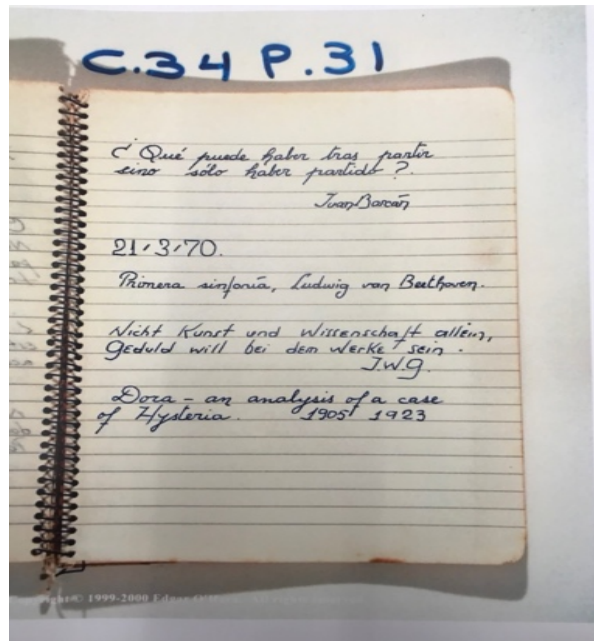 C.34 P.31
¿ Qué puede haber tras partir
sino sólo haber partido ?.
Juan Barcán
21,3,70.
Primera sinfonía, Ludwig van Beethoven.
Nicht Kunst und Wissenschaft allein,
Geduld will bei dem Werke sein.
J.W.G.
Dora - an analysis of a case
of Hysteria. 1905 1923
Copyright© 1999-2000 Edgar